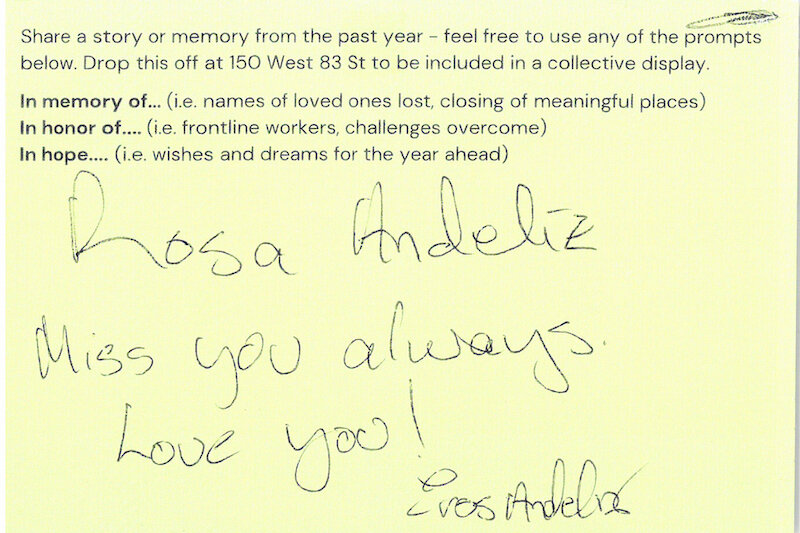 Share a story or memory from the past year – feel free to use any of the prompts
below. Drop this off at 150 West 83 St to be included in a collective display.
In memory of... (i.e. names of loved ones lost, closing of meaningful places)
In honor of.... (i.e. frontline workers, challenges overcome)
In hope.... (i.e. wishes and dreams for the year ahead)
Rosa Andeliz
Miss you always.
Love you!
Andeliz